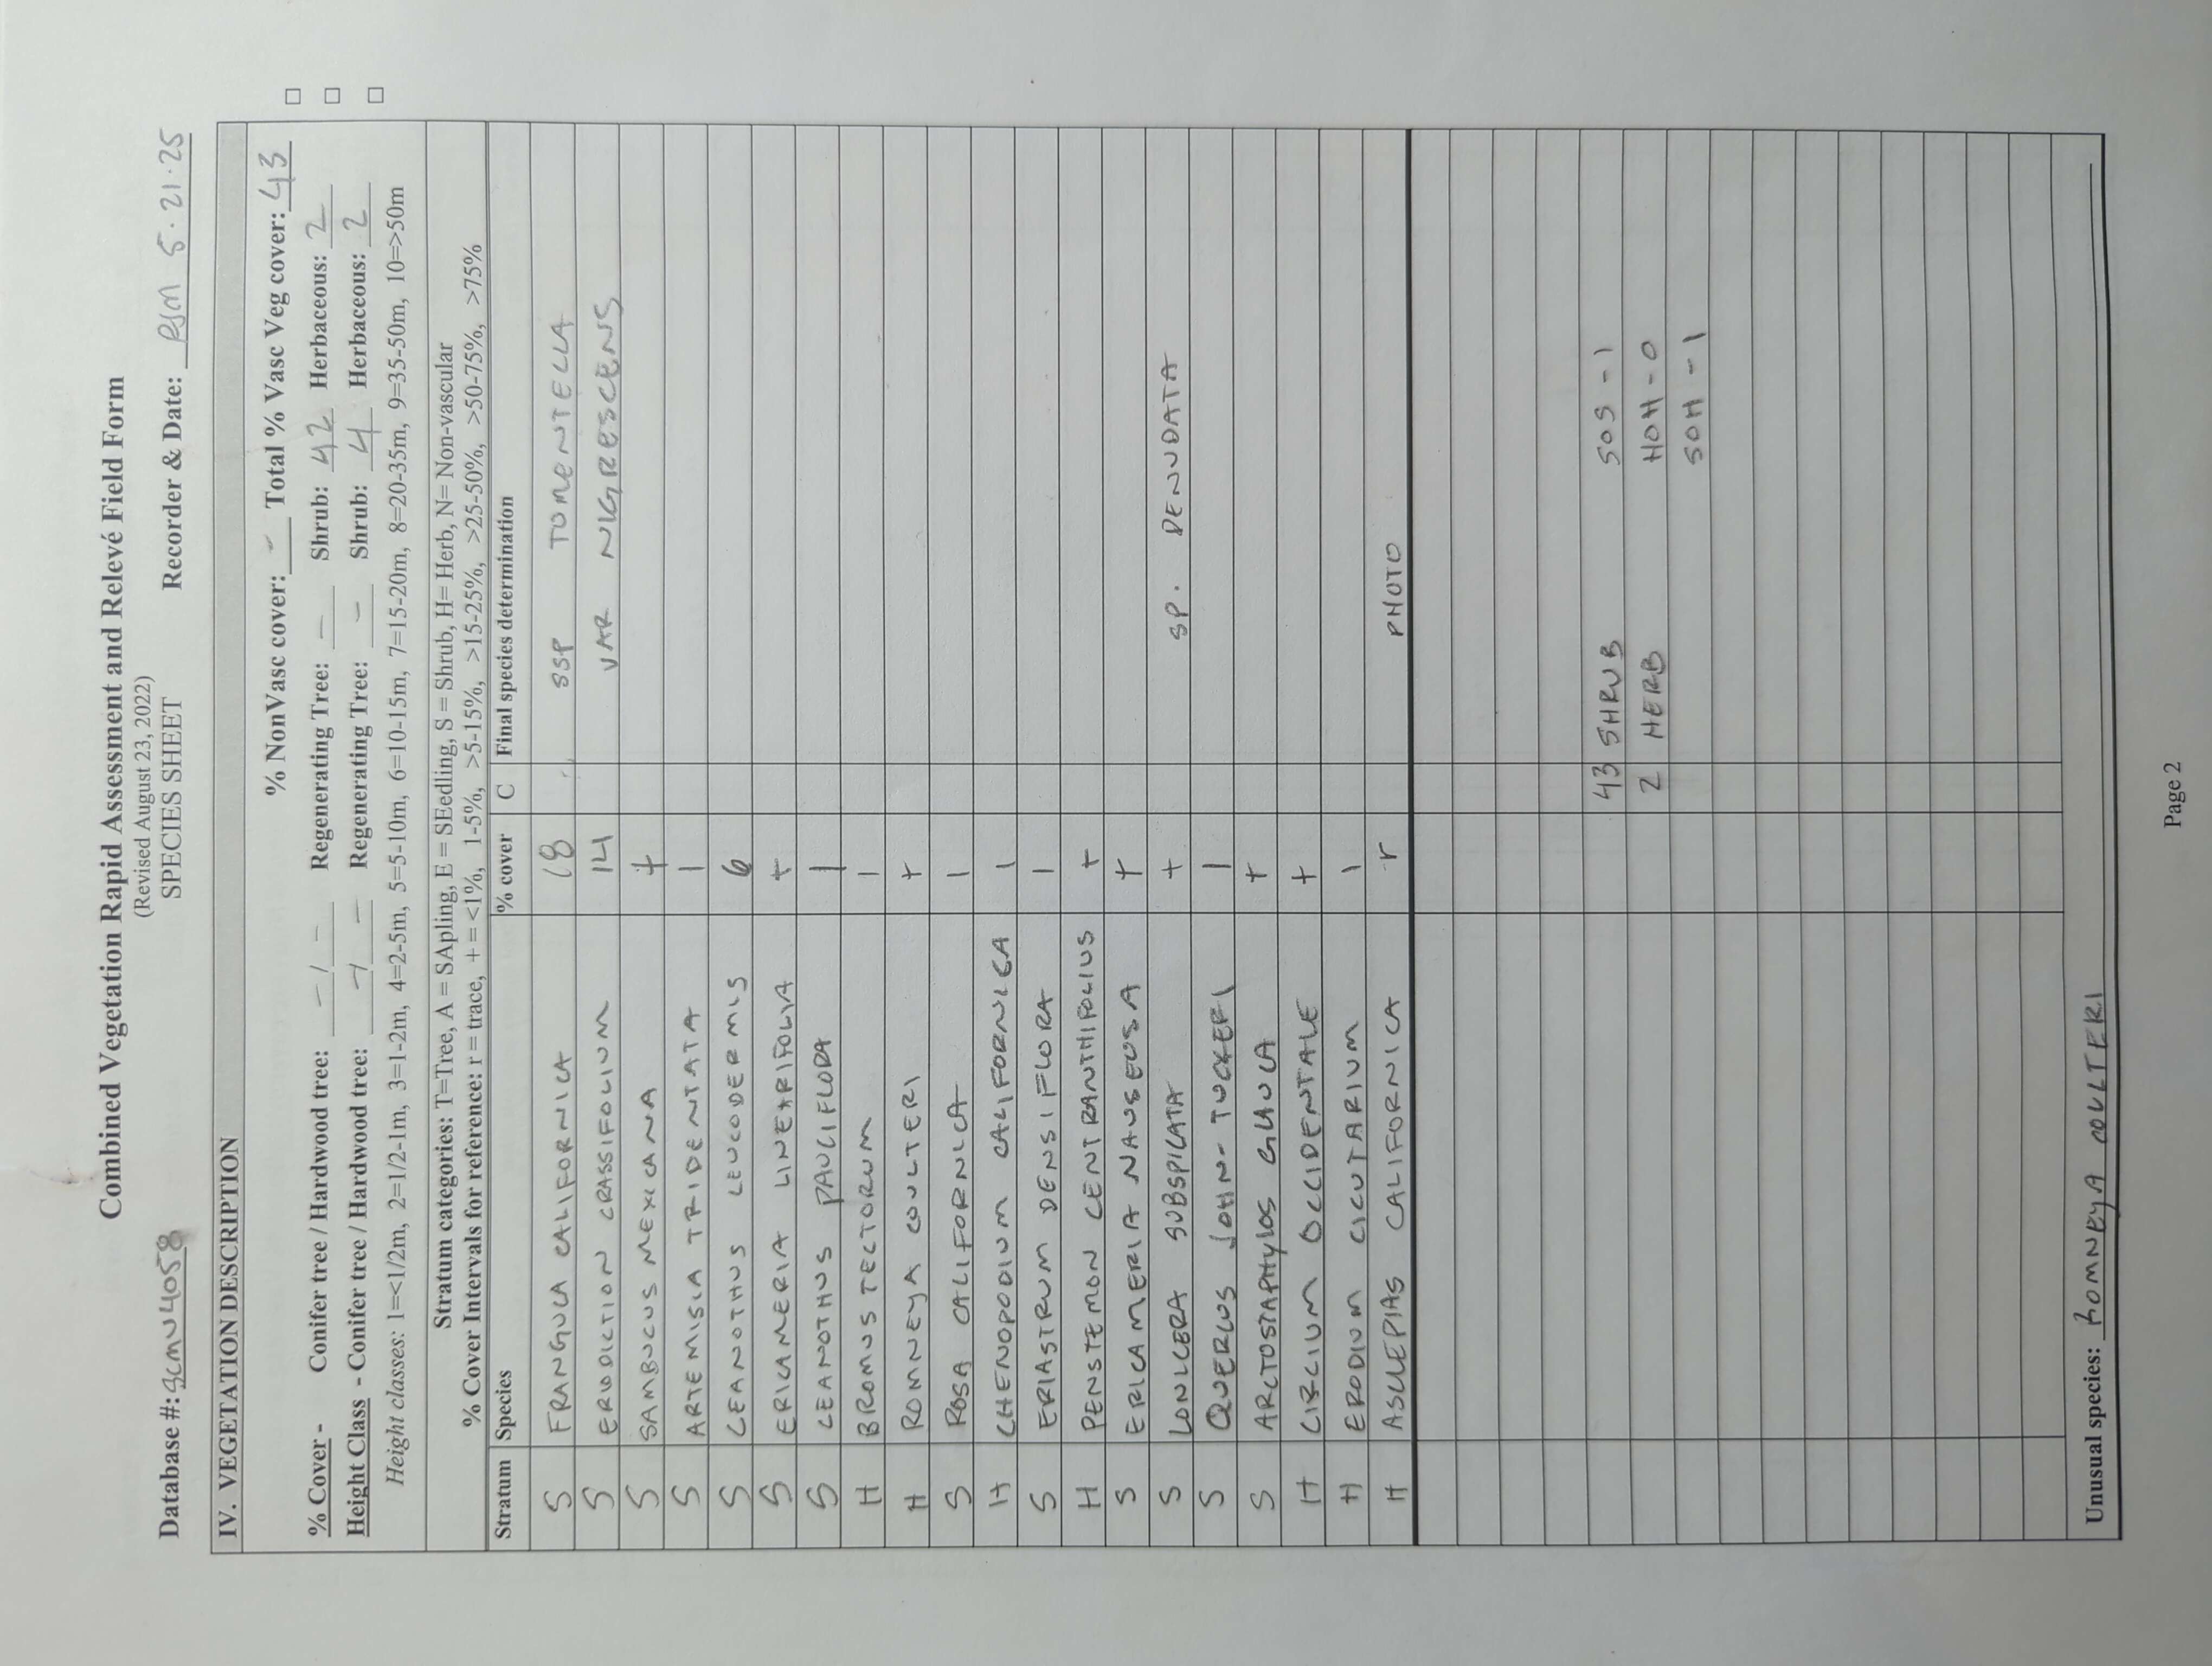 Combined Vegetation Rapid Assessment and Relevé Field Form
(Revised August 23, 2022)
SPECIES SHEET
Database #: SCMU4058 Recorder & Date: RJM 5.21.25
IV. VEGETATION DESCRIPTION
% NonVasc cover: - Total % Vasc Veg cover: 43
% Cover - Conifer tree / Hardwood tree: - / - Regenerating Tree: - Shrub: 42 Herbaceous: 2
Height Class - Conifer tree / Hardwood tree: - / - Regenerating Tree: - Shrub: 4 Herbaceous: 2
Height classes: 1=<1/2m, 2=1/2-1m, 3=1-2m, 4=2-5m, 5=5-10m, 6=10-15m, 7=15-20m, 8=20-35m, 9=35-50m, 10=>50m
Stratum categories: T=Tree, A = SApling, E = SEedling, S = Shrub, H= Herb, N= Non-vascular
% Cover Intervals for reference: r = trace, + = <1%, 1-5%, >5-15%, >15-25%, >25-50%, >50-75%, >75%
Stratum Species % cover C Final species determination
S FRANGULA CALIFORNICA 18 SSP TOMENTELLA
S ERIODICTION CRASSIFOLIUM 14 VAR NIGRESCENS
S SAMBUCUS MEXICANA +
S ARTEMISIA TRIDENTATA 1
S CEANOTHUS LEUCODERMIS 6
S ERICAMERIA LINEARIFOLIA +
S CEANOTHUS PAUCIFLORA 1
H BROMUS TECTORUM 1
H ROMNEYA COULTERI +
S ROSA CALIFORNICA 1
H CHENOPODIUM CALIFORNICA 1
S ERIASTRUM DENSIFLORA 1
H PENSTEMON CENTRANTHIFOLIUS +
S ERICAMERIA NAUSEUSA +
S LONICERA SUBSPICATA + SP. DENUDATA
S QUERCUS JOHN-TUCKERI 1
S ARCTOSTAPHYLOS GLAUCA +
H CIRCIUM OCCIDENTALE +
H ERODIUM CICUTARIUM 1
H ASCLEPIAS CALIFORNICA r PHOTO
43 SHRUB SOS - 1
2 HERB HOH - 0
SOH - 1
Unusual species: ROMNEYA COULTERI
Page 2